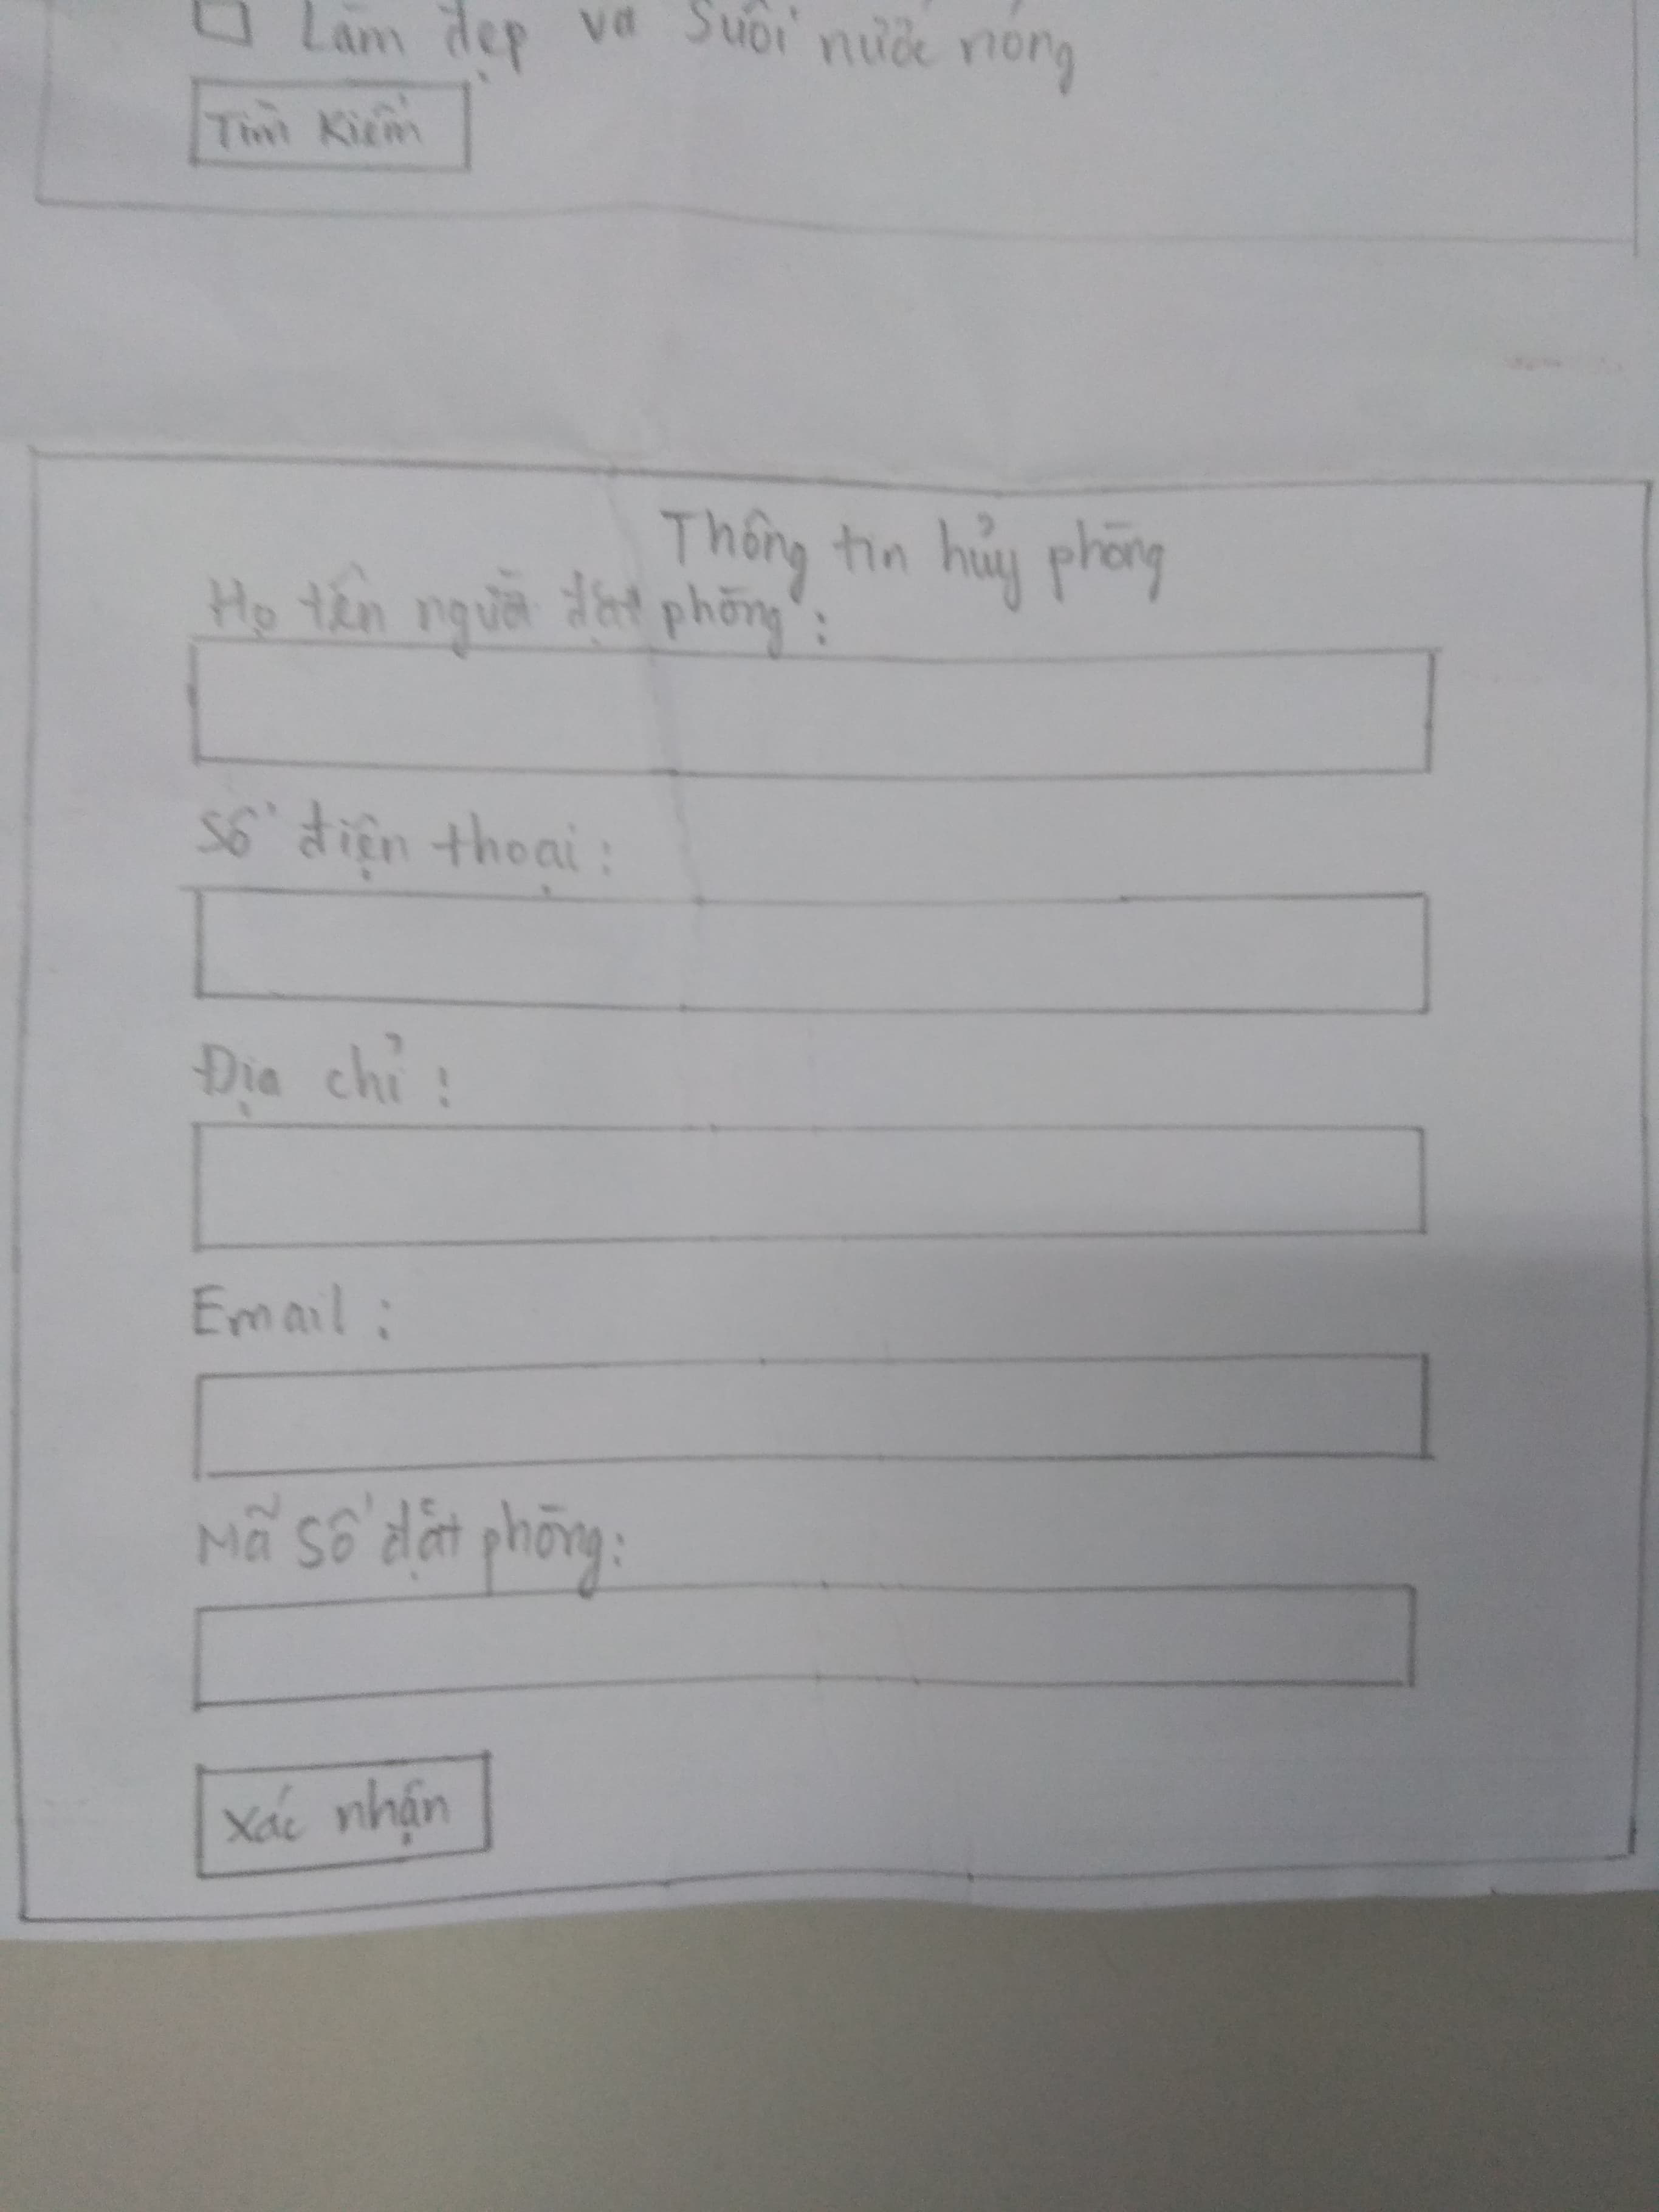 Làm đẹp và Suối nước nóng
Tìm Kiếm
Thông tin hủy phòng
Họ tên người đặt phòng :
Số điện thoại :
Địa chỉ :
Email :
Mã Số đặt phòng :
Xác nhận